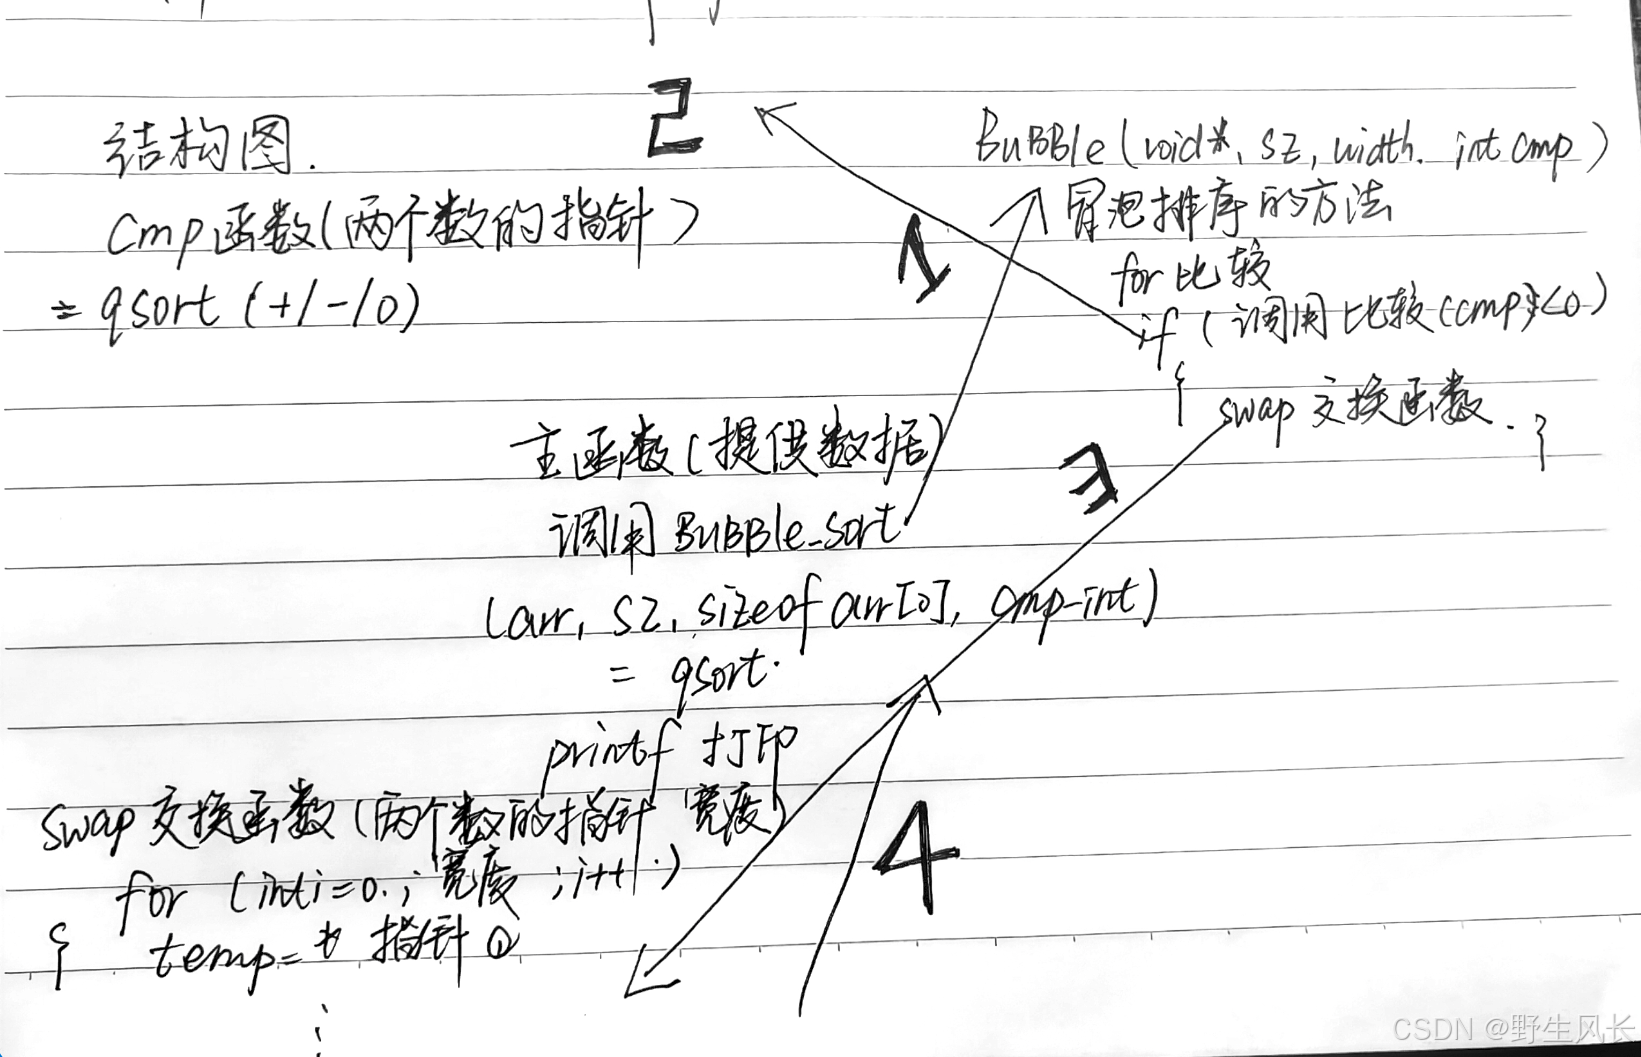 2
结构图.
Cmp函数(两个数的指针)
= qsort (+/-/0)
BuBBle (void*, sz, width. int cmp)
冒泡排序的方法
for 比较
if (调用比较(cmp)<0)
{ swap 交换函数. }
1
主函数(提供数据)
调用 BuBBle_sort
(arr, sz, sizeof arr[0], cmp-int)
= qsort.
printf 打印
3
swap 交换函数(两个数的指针 宽度)
for (int i=0.; 宽度 ; i++.)
{ temp= * 指针①
4
CSDN @野生风长